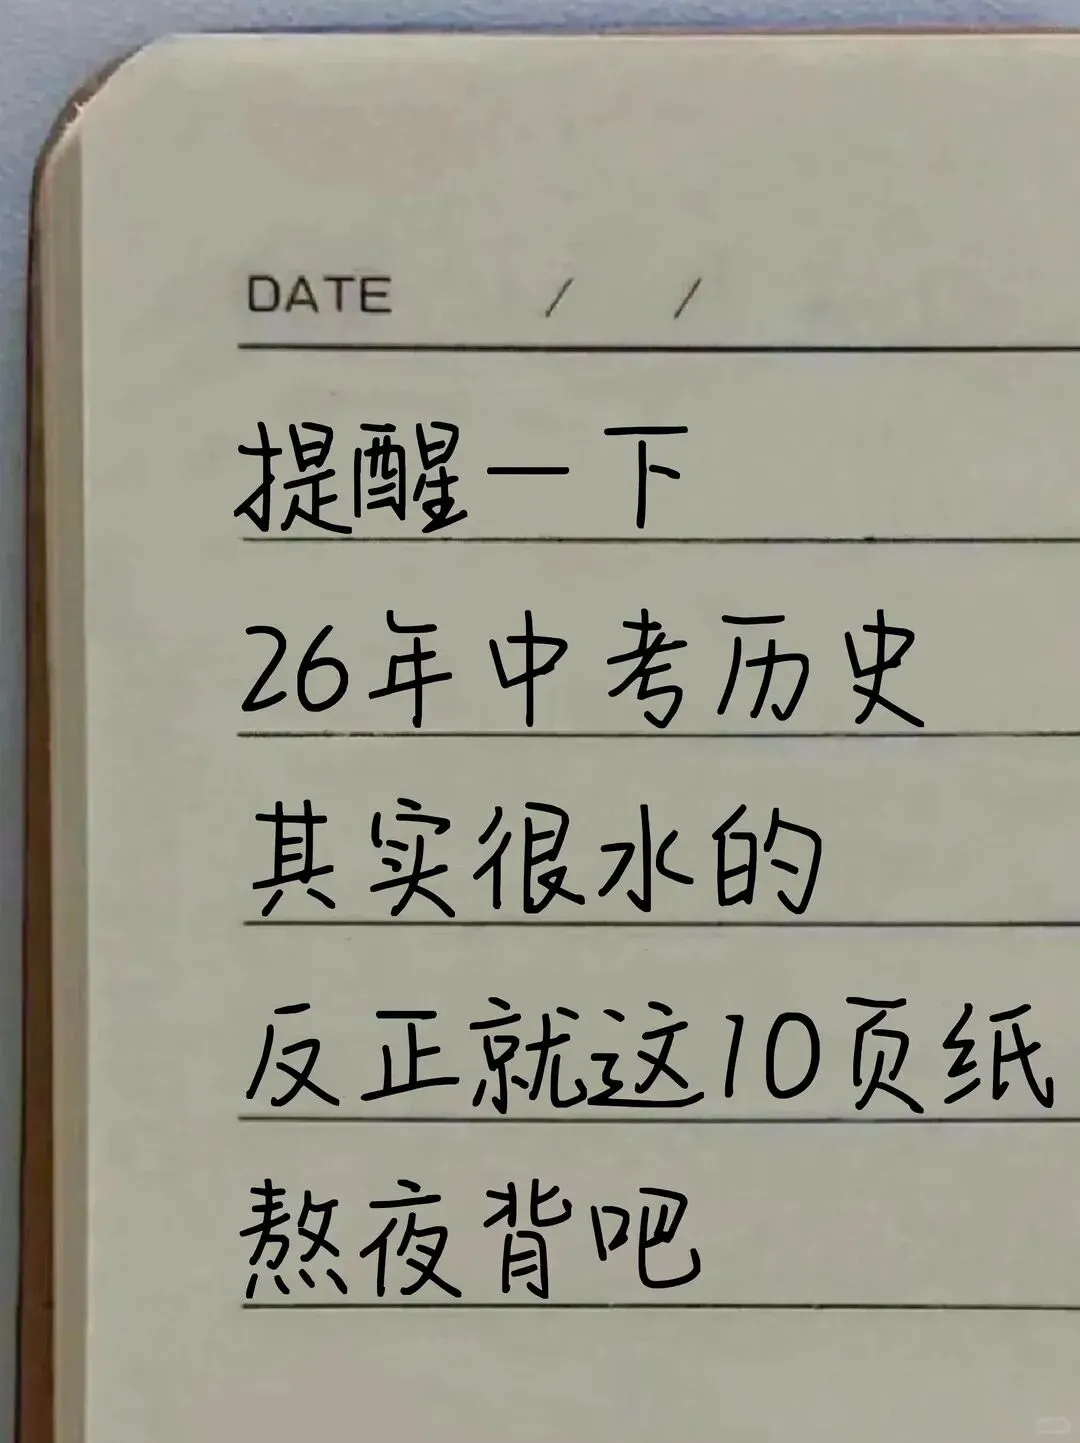 DATE / /
提醒一下
26年中考历史
其实很水的
反正就这10页纸
熬夜背吧